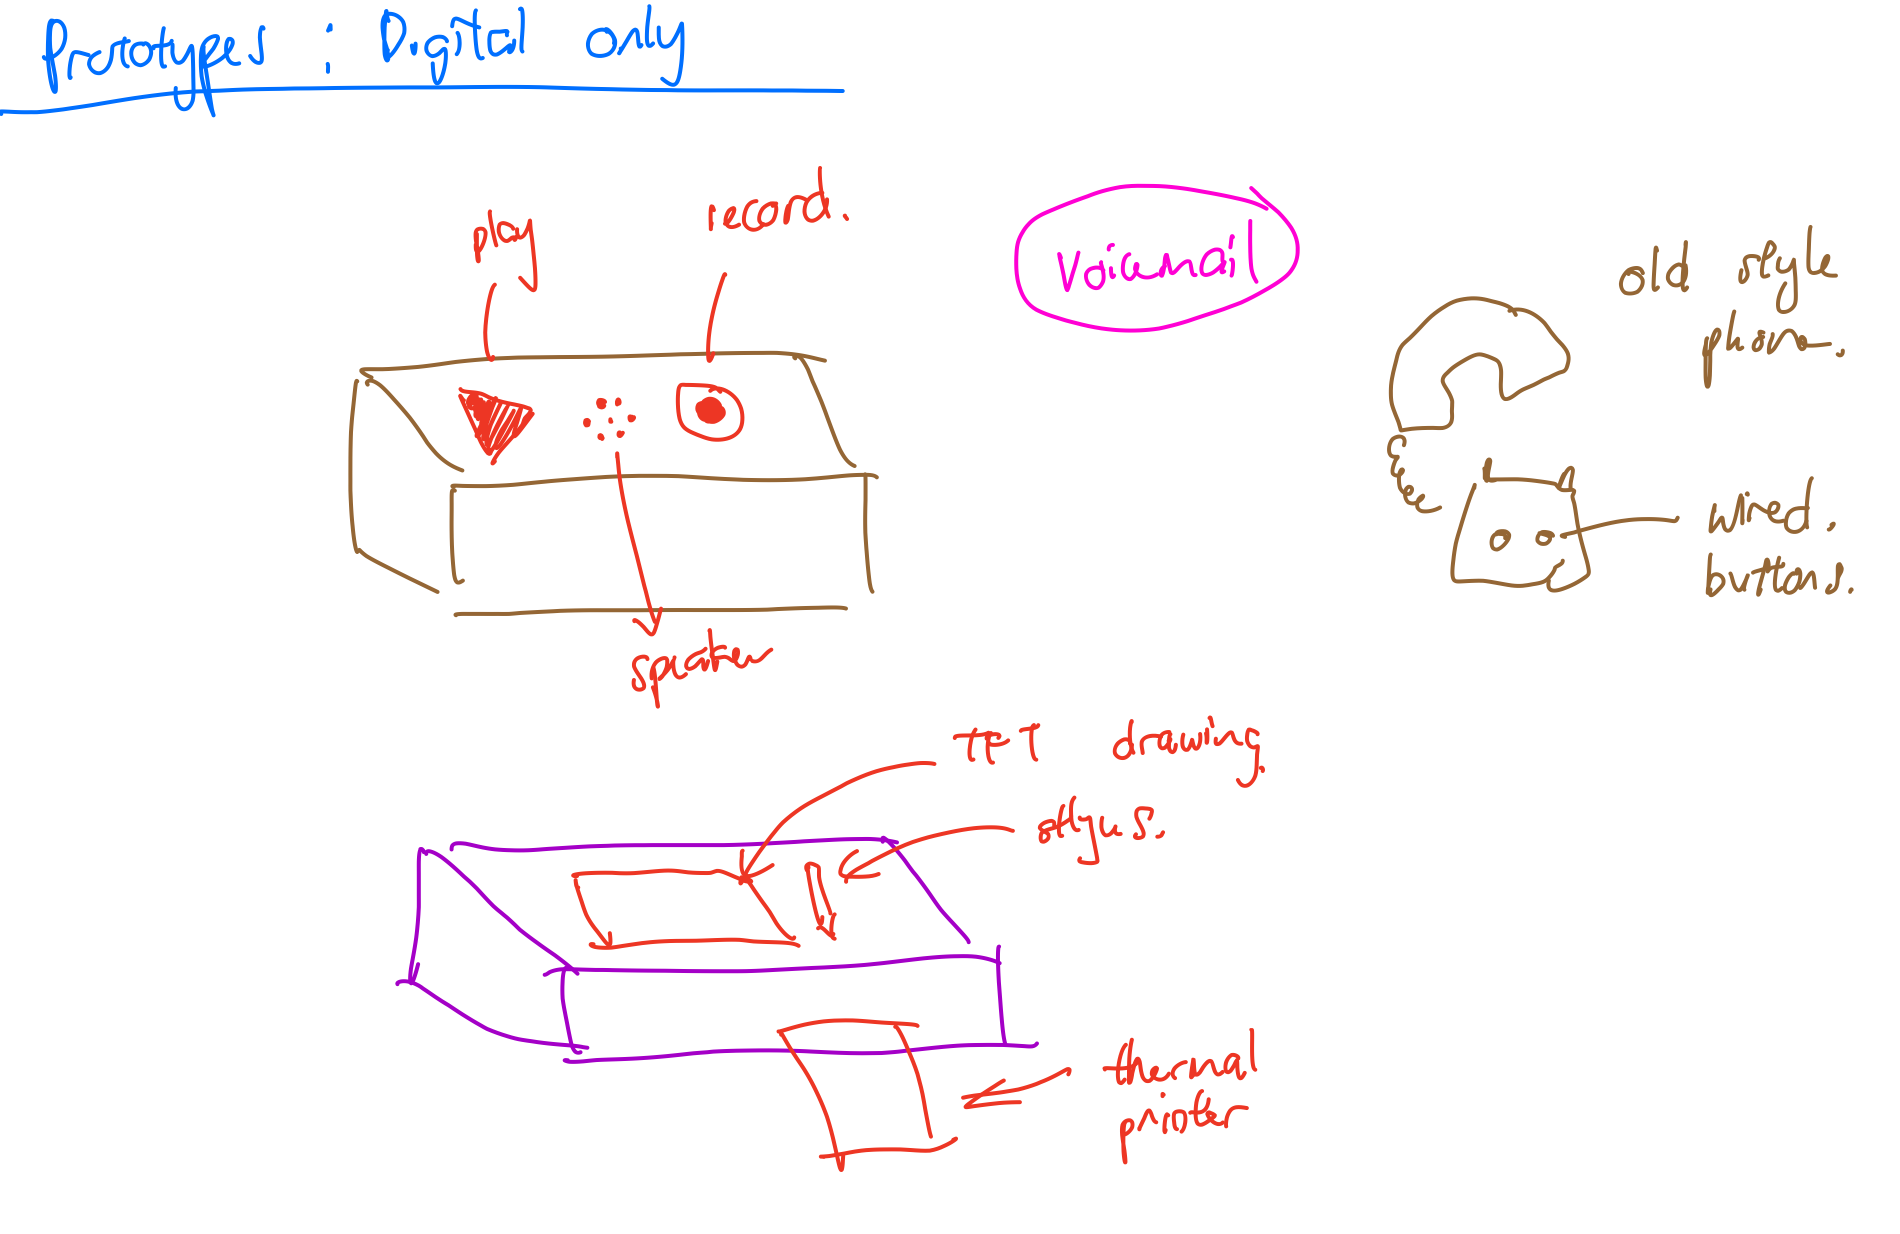 Prototypes : Digital only
play
record.
Voicemail
old style
phone.
wired.
buttons.
speaker
TFT drawing.
stlyus.
thermal
printer